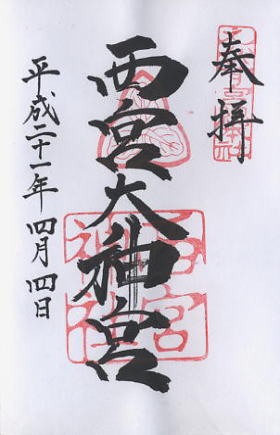 奉拝
西宮大神宮
平成二十一年四月四日